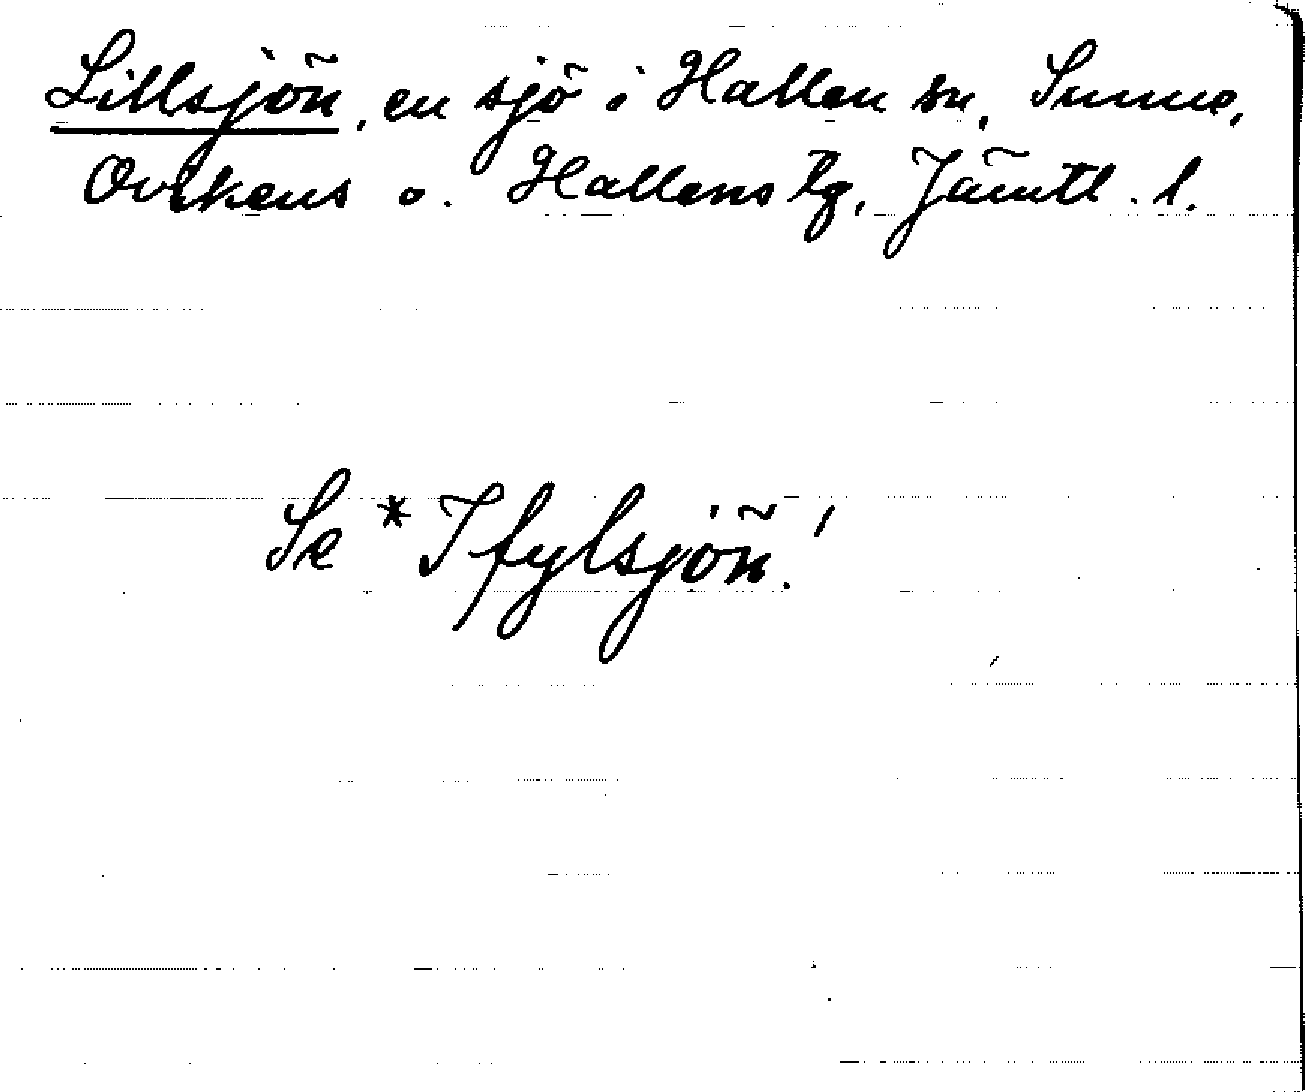 Lillsjön, en sjö i Hallen sn, Sunne,
Ovikens o. Hallens tg, Jämtl. l.
Se * Ifylsjön!